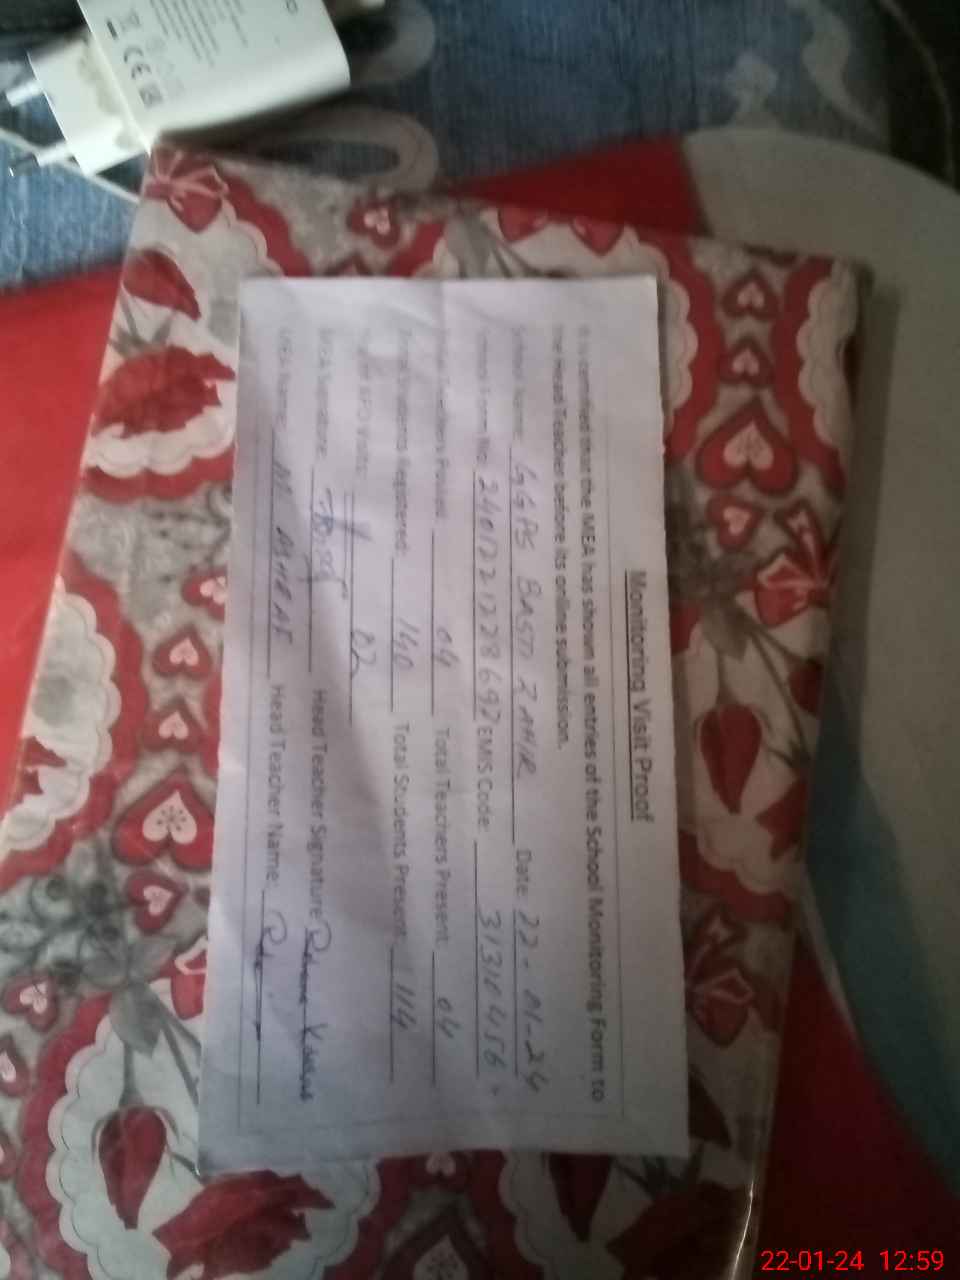 Monitoring Visit Proof
It is certified that the MEA has shown all entries of the School Monitoring Form to
the Head Teacher before its online submission.
School Name: GGPS BASTI ZAHIR Date: 22-01-24
Form No: 2401221228692 EMIS Code: 31310456
Teachers Posted: 04 Total Teachers Present 04
Students Registered: 140 Total Students Present 114
Visits: 02
MEA Signature: Head Teacher Signature:
MEA Name: M. Head Teacher Name:
CE
22-01-24 12:59